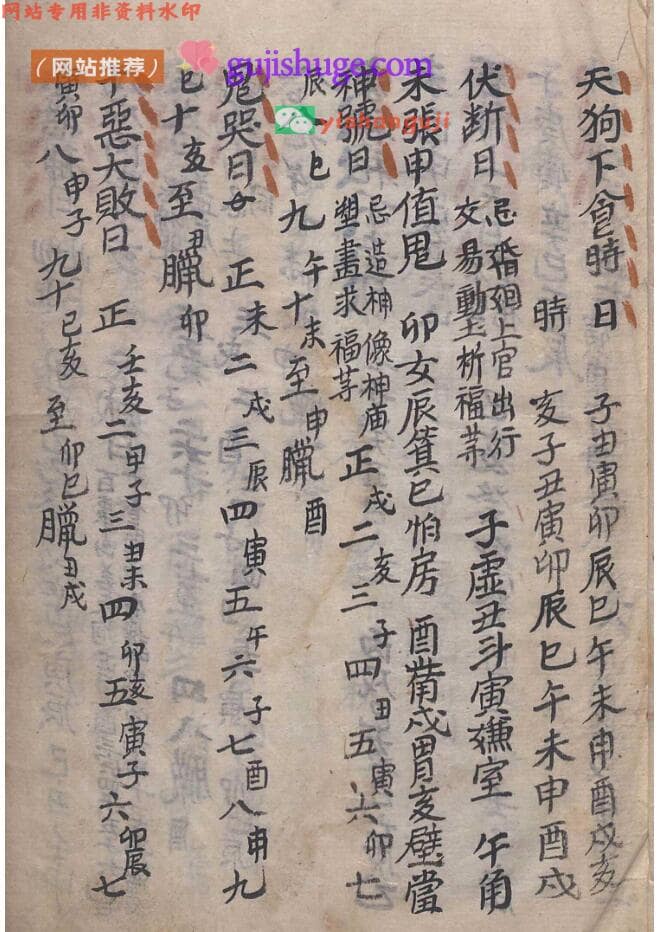 网站专用非资料水印
（网站推荐）
gujishuge.com
yishanguji
天狗下食時日 子丑寅卯辰巳午未申酉戌亥
時 亥子丑寅卯辰巳午未申酉戌
伏断日 忌婚廻上官出行
交易動土析福茅 子虚丑斗寅嫌室 午角
未張申值鬼 卯女辰箕巳怕房 酉觜戌胃亥壁當
神號日 忌造神像神庙
塑畫求福茅 正戌二亥三子四丑五寅六卯七
辰八巳九午十未至申臘酉
鬼哭日 正未二戌三辰四寅五午六子七酉八申九
巳十亥至丑臘卯
十惡大敗日 正壬亥二甲子三丑未四卯亥五寅子六卯辰七
寅卯八申子九十巳亥至卯巳臘丑戌